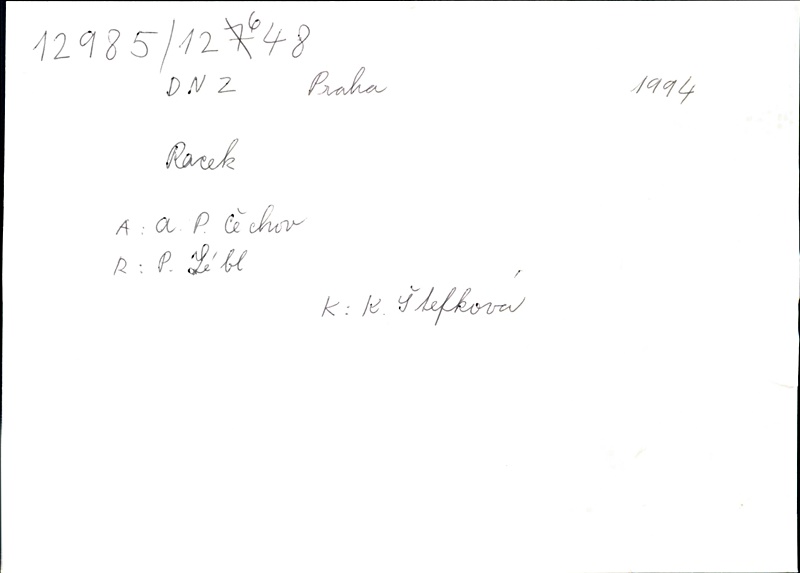 12985/12648
DNZ Praha 1994
Racek
A: A. P. Čechov
R: P. Lébl
K: K. Štefková